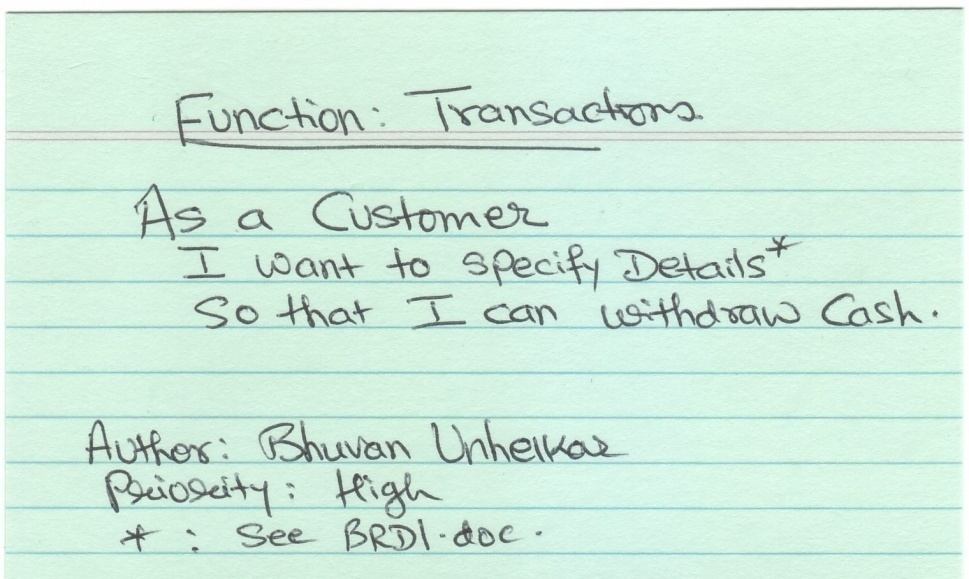 Function: Transactions
As a Customer
I want to specify Details*
So that I can withdraw Cash.
Author: Bhuvan Unhelkar
Priority: High
* : See BRD1.doc.